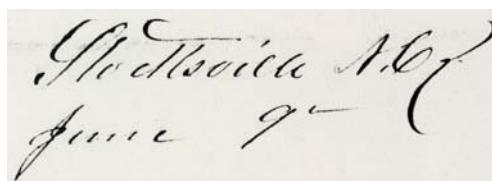 Stottsville N.Y.
June 9th